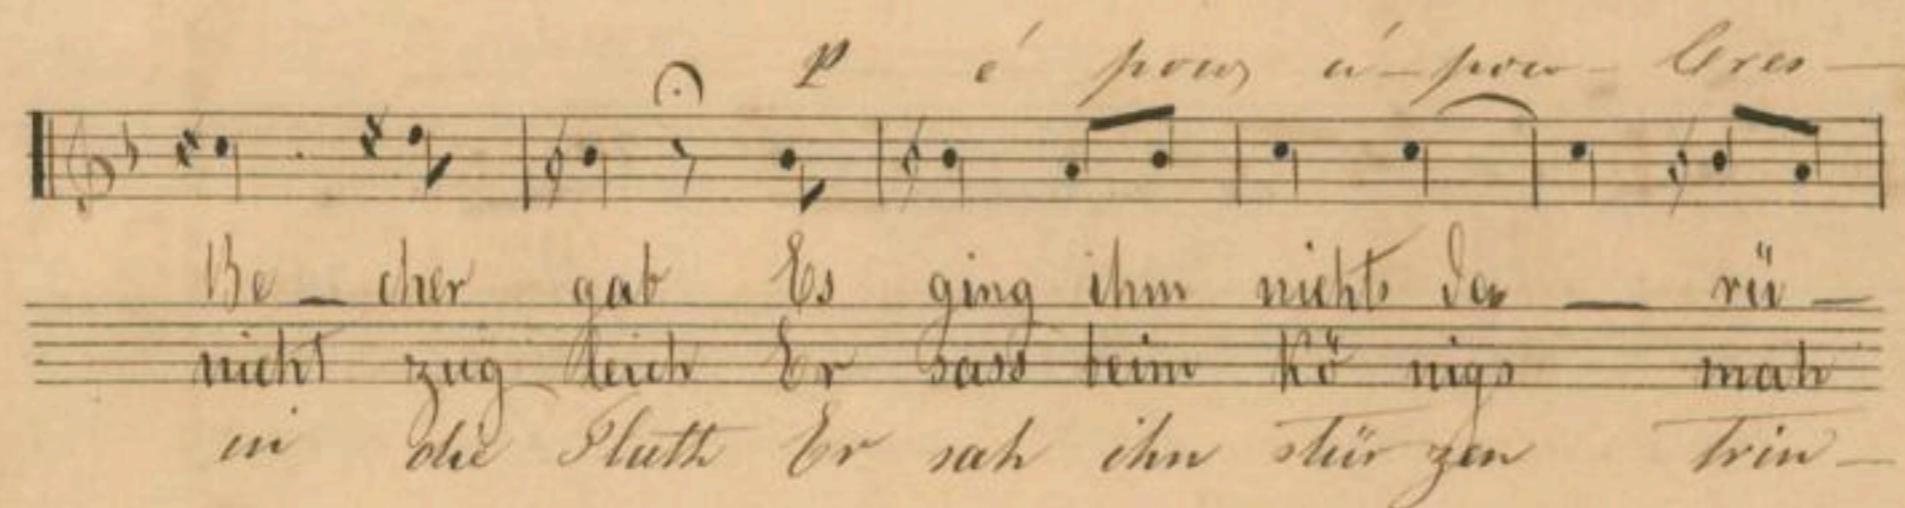 p é pouco a pouco Cres —
Be — cher gab Es ging ihm nichts da — rü —
nicht zug leich Er sass beim Kö nigs mah
in die Fluth Er sah ihn stür zen trin —